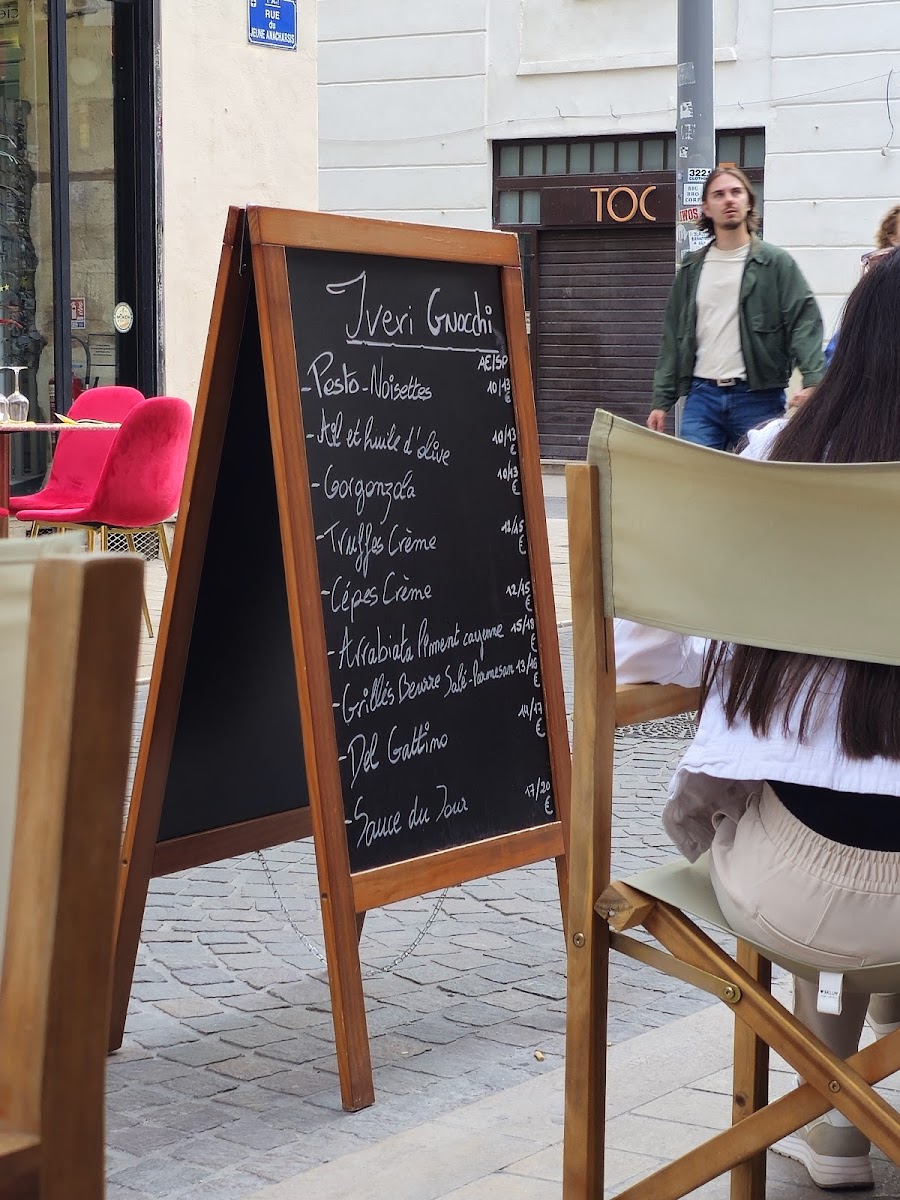 RUE
du
JEUNE ANACHARSIS
TOC
322
Iveri Gnocchi
AE/SP
-Pesto-Noisettes 10/13 €
-Ail et huile d'olive 10/13 €
-Gorgonzola 10/13 €
-Truffes Crème 12/15 €
-Cépes Crème 12/15 €
-Arrabiata Piment cayenne 15/18 €
-Grillés Beurre Salé-Parmesan 13/16 €
-Del Gattino 14/17 €
-Sauce du Jour 17/20 €